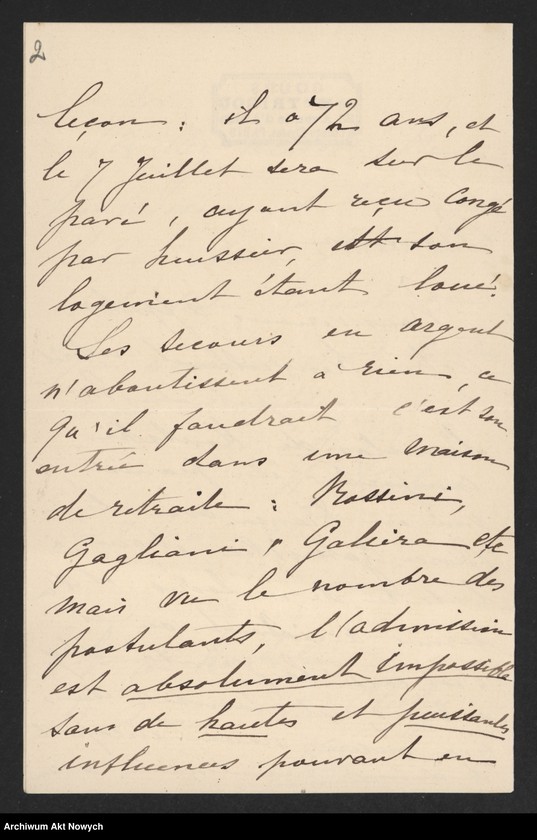 2
leçon : il a 72 ans, et
le 7 Juillet sera sur le
pavé, ayant reçu congé
par huissier, son
logement étant loué.
Les secours en argent
n'aboutissent à rien, ce
qu'il faudrait c'est son
entrée dans une maison
de retraite : Rossini,
Gagliani, Galiera etc
mais vu le nombre des
postulants, l'admission
est absolument impossible
sans de hautes et puissantes
influences pouvant en
Archiwum Akt Nowych